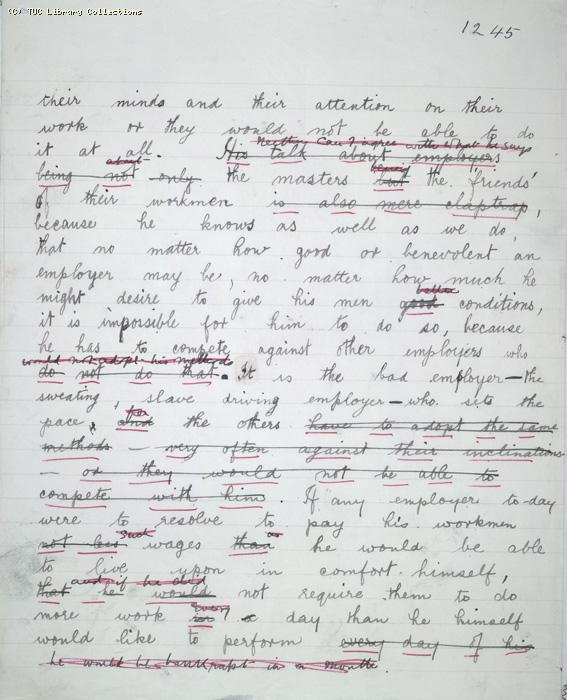 (c) TUC Library Collections
1245
their minds and their attention on their
work or they would not be able to do
Neither can I agree with what he says
it at all. His talk about employers
about
being not only the masters but the 'friends'
being
of their workmen is also mere claptrap,
because he knows as well as we do,
that no matter how good or benevolent an
employer may be, no matter how much he
better
might desire to give his men good conditions,
it is impossible for him to do so, because
he has to compete against other employers who
would not adopt his methods
do not do that. It is the bad employer—the
sweating, slave driving employer—who sets the
for
pace, and the others have to adopt the same
methods — very often against their inclinations
— or they would not be able to
compete with him. If any employer to-day
were to resolve to pay his workmen
such as
not less wages than he would be able
to live upon in comfort himself,
and if he did
that he would not require them to do
every
more work in a day than he himself
would like to perform every day of his
he would be bankrupt in a month.